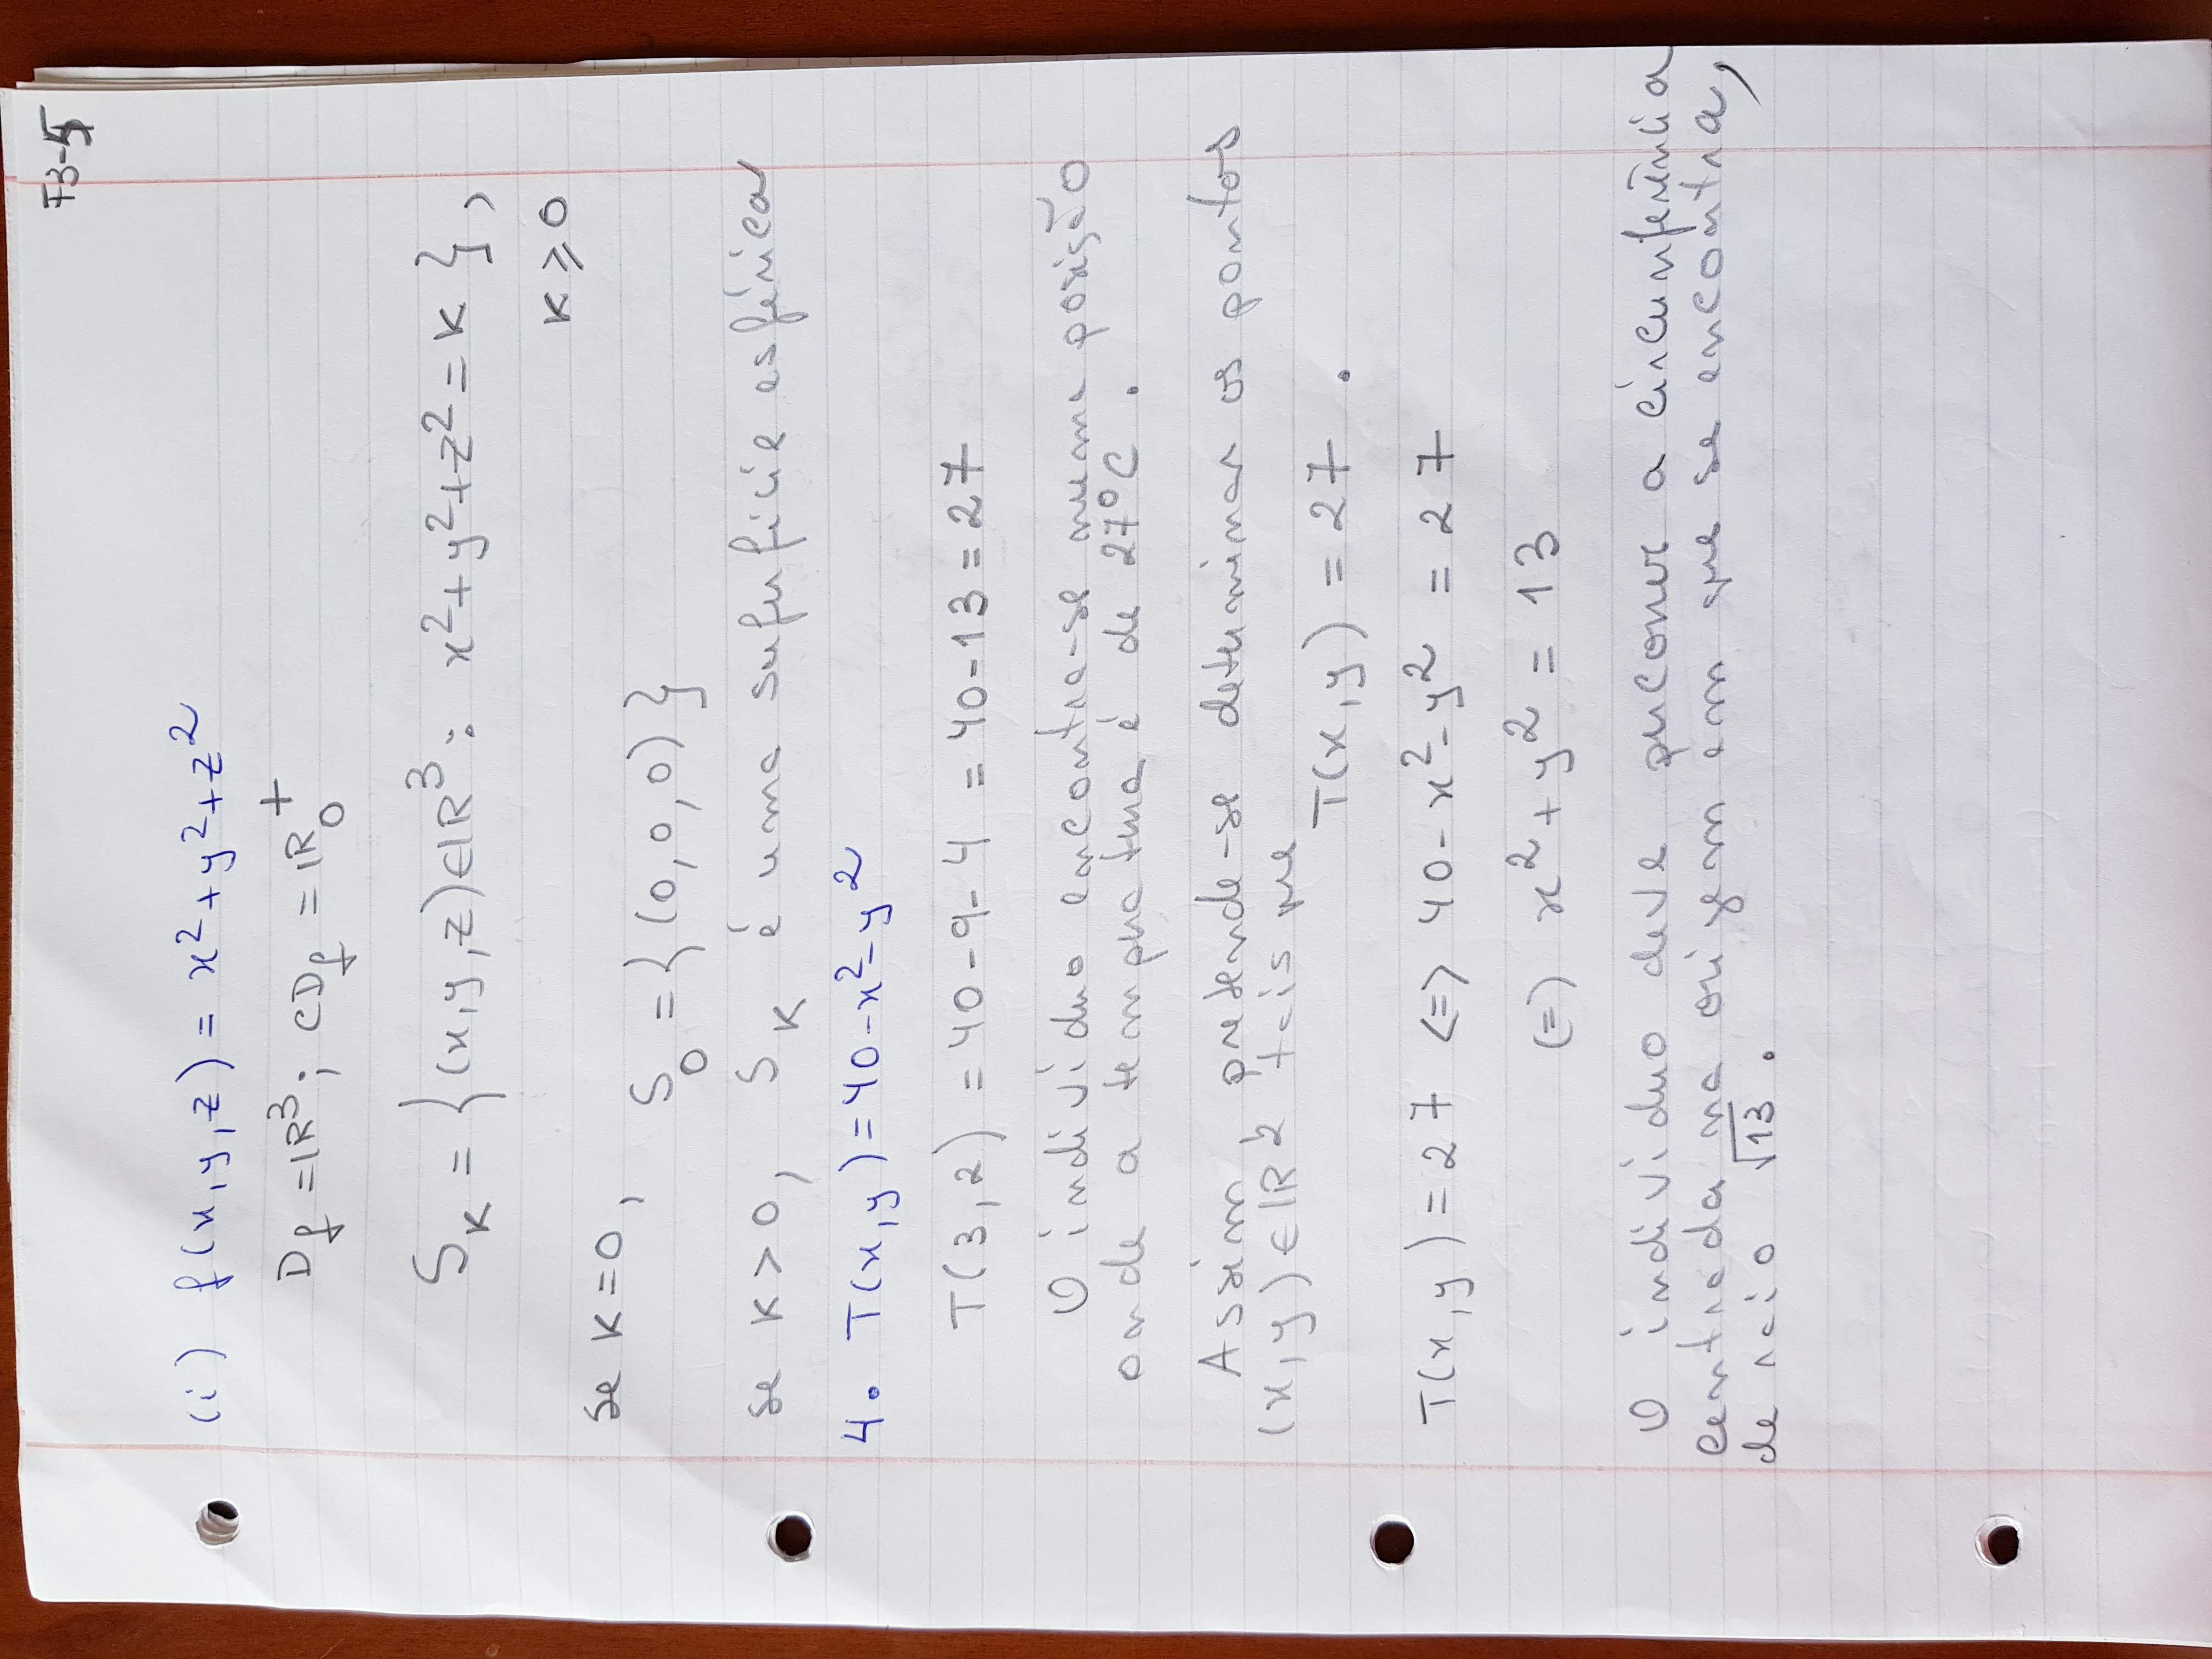 F3-5
(i) f(x,y,z) = x²+y²+z²
Df = IR³; CDf = IR₀⁺
Sₖ = {(x,y,z)∈IR³: x²+y²+z² = K},
K ⩾ 0
se K=0,
S₀ = {(0,0,0)}
se K>0, Sₖ é uma superfície esférica
4. T(x,y) = 40-x²-y²
T(3,2) = 40-9-4 = 40-13 = 27
O indivíduo encontra-se numa posição
onde a temperatura é de 27°C.
Assim, pretende-se determinar os pontos
(x,y)∈IR² tais que
T(x,y) = 27.
T(x,y) = 27 <=> 40-x²-y² = 27
(=) x²+y² = 13
O indivíduo deve percorrer a circunferência
centrada na origem em que se encontra,
de raio √13.